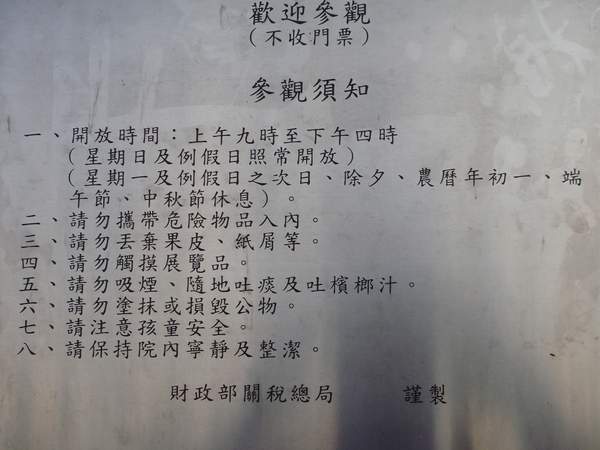 歡迎參觀
（不收門票）
參觀須知
一、開放時間：上午九時至下午四時
（星期日及例假日照常開放）
（星期一及例假日之次日、除夕、農曆年初一、端
午節、中秋節休息）。
二、請勿攜帶危險物品入內。
三、請勿丟棄果皮、紙屑等。
四、請勿觸摸展覽品。
五、請勿吸煙、隨地吐痰及吐檳榔汁。
六、請勿塗抹或損毀公物。
七、請注意孩童安全。
八、請保持院內寧靜及整潔。
財政部關稅總局　謹製